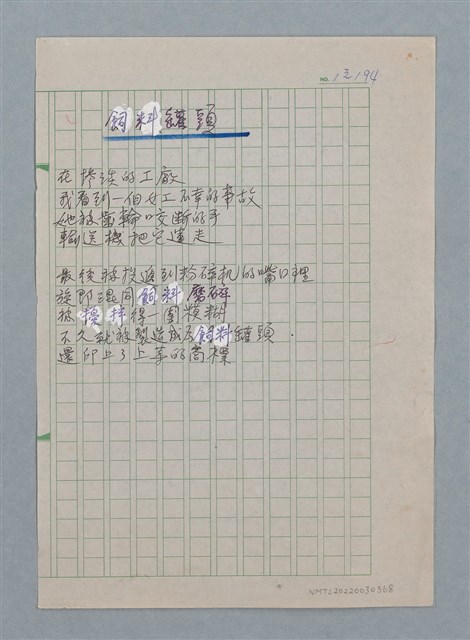 NO. 1至194
飼料罐頭
在慘淡的工廠
我看到一個女工不幸的事故
她被齒輪口咬斷的手
輸送機把它運走
最後被投遞到粉碎机的嘴口裡
旋即 同飼料磨碎
被攪拌得一團糢糊
不久就被製造成為飼料罐頭.
還印上了上等的商標
NMTL20220030368